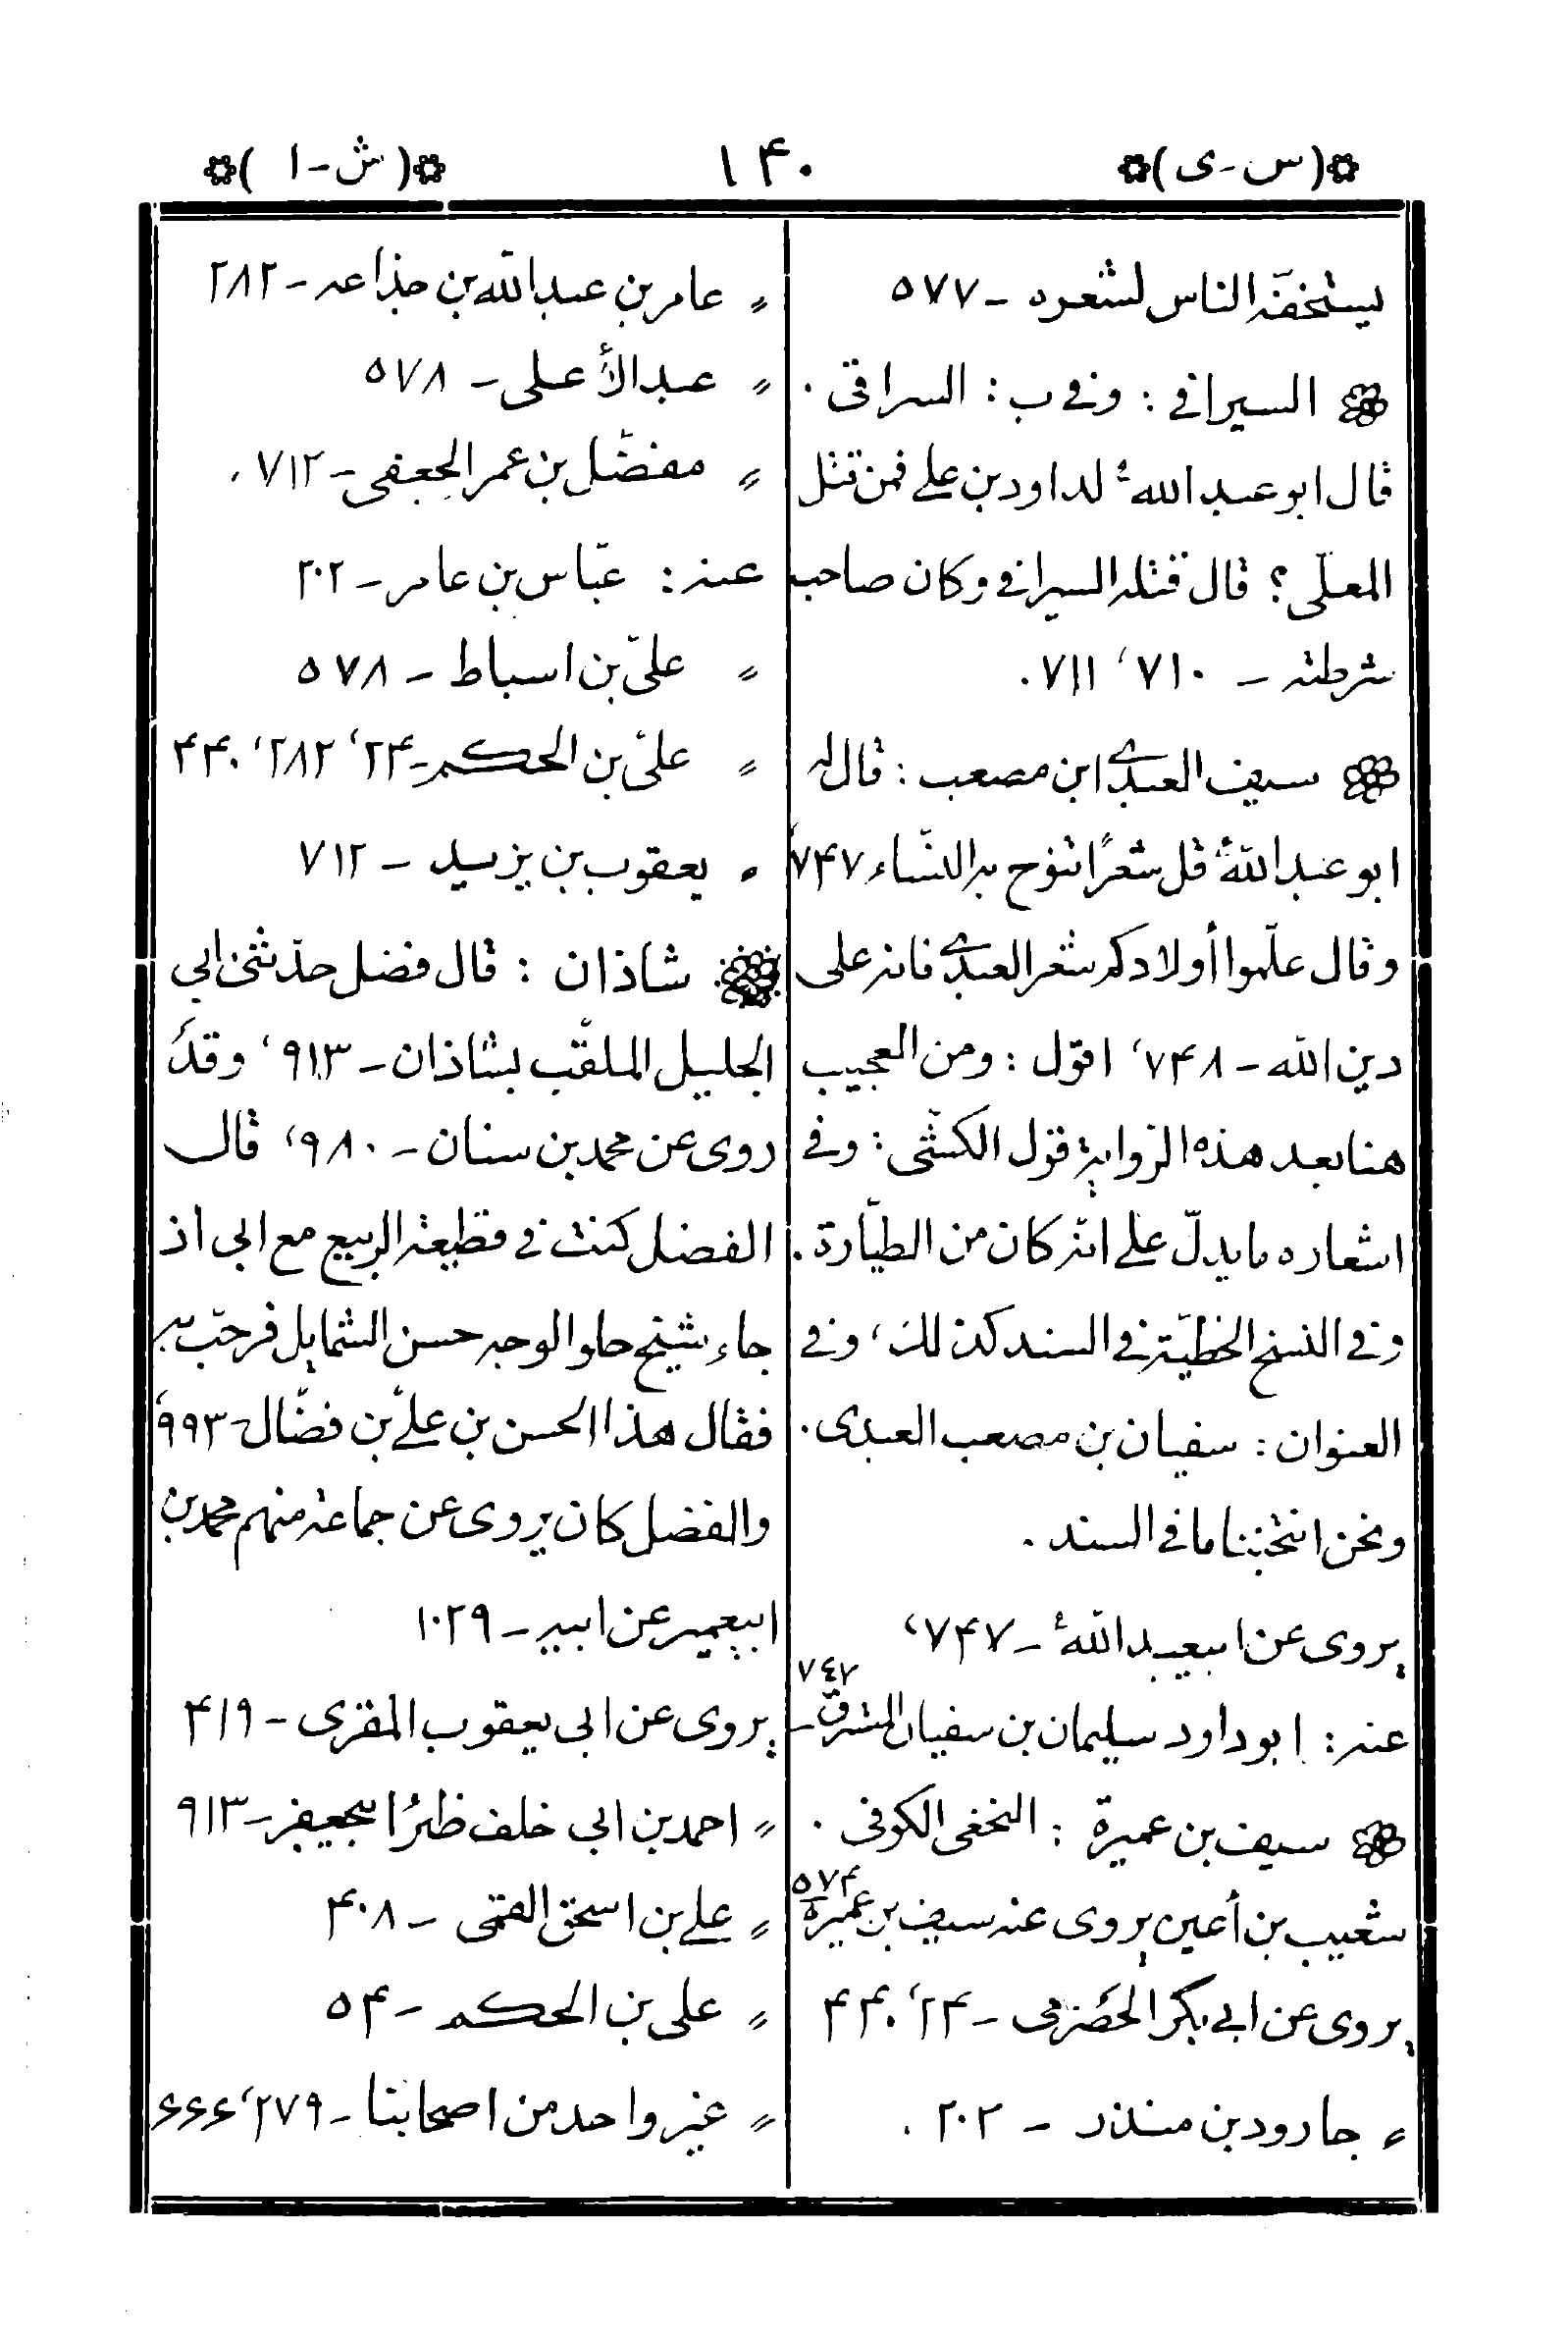 (س-ى)
۱۴۰
(ش-ا)
يستخفّه الناس لشعره - ۵۷۷
السيرافي : وفي ب : السراقى .
قال ابو عبد اللهؑ لداود بن علي فمن قتل
المعلّى؟ قال قتله السيرافي وكان صاحب
شرطته - ۷۱۰، ۷۱۱.
سيف العبدي ابن مصعب : قال له
ابو عبد اللهؑ قل شعرًا تنوح به النّساء ۷۴۷،
وقال علّموا أولادكم شعر العبدي فانه على
دين الله - ۷۴۸، اقول : ومن العجيب
هنا بعد هذه الرّواية قول الكشّى : وفي
اشعاره ما يدلّ على انّه كان من الطيّارة .
وفي النسخ الخطيّة في السند كذلك، وفي
العنوان : سفيان بن مصعب العبدى .
ونحن انتخبنا ما في السند .
يروى عن ابيعبد اللهؑ - ۷۴۷،
عنه : ابو داود سليمان بن سفيان المسترق - ۷٤۷
سيف بن عميرة : النخعى الكوفى .
شعيب بن أعين يروى عنه سيف بن عميرة ۵۷۴
يروى عن ابي بكر الحضرمى - ۲۴، ۴۴۰
〃 جارود بن منذر - ۲۰۲ .
〃 عامر بن عبدالله بن جذاعه - ۲۸۲
〃 عبد الأعلى - ۵۷۸
〃 مفضّل بن عمر الجعفى - ۷۱۲ .
عنه : عبّاس بن عامر - ۲۰۲
〃 علىّ بن اسباط - ۵۷۸
〃 علىّ بن الحكم - ۲۴، ۲۸۲، ۴۴۰
〃 يعقوب بن يزيد - ۷۱۲
شاذان : قال فضل حدّثنى ابي
الجليل الملقّب بشاذان - ۹۱۳، وقد
روى عن محمد بن سنان - ۹۸۰، قال
الفضل كنت في قطيعة الربيع مع ابى اذ
جاء شيخ حلو الوجه حسن الشمايل فرحّب به
فقال هذا الحسن بن عليّ بن فضّال - ۹۹۳،
والفضل كان يروى عن جماعة منهم محمد بن
ابيعمير عن ابيه - ۱۰۲۹
يروى عن ابى يعقوب المقرى - ۴۱۹
〃 احمد بن ابى خلف ظئر ابيجعفر - ۹۱۳
〃 علي بن اسحق القمى - ۴۰۸
〃 على بن الحكم - ۵۴
〃 غير واحد من اصحابنا - ۲۷۹، ۶۶۶